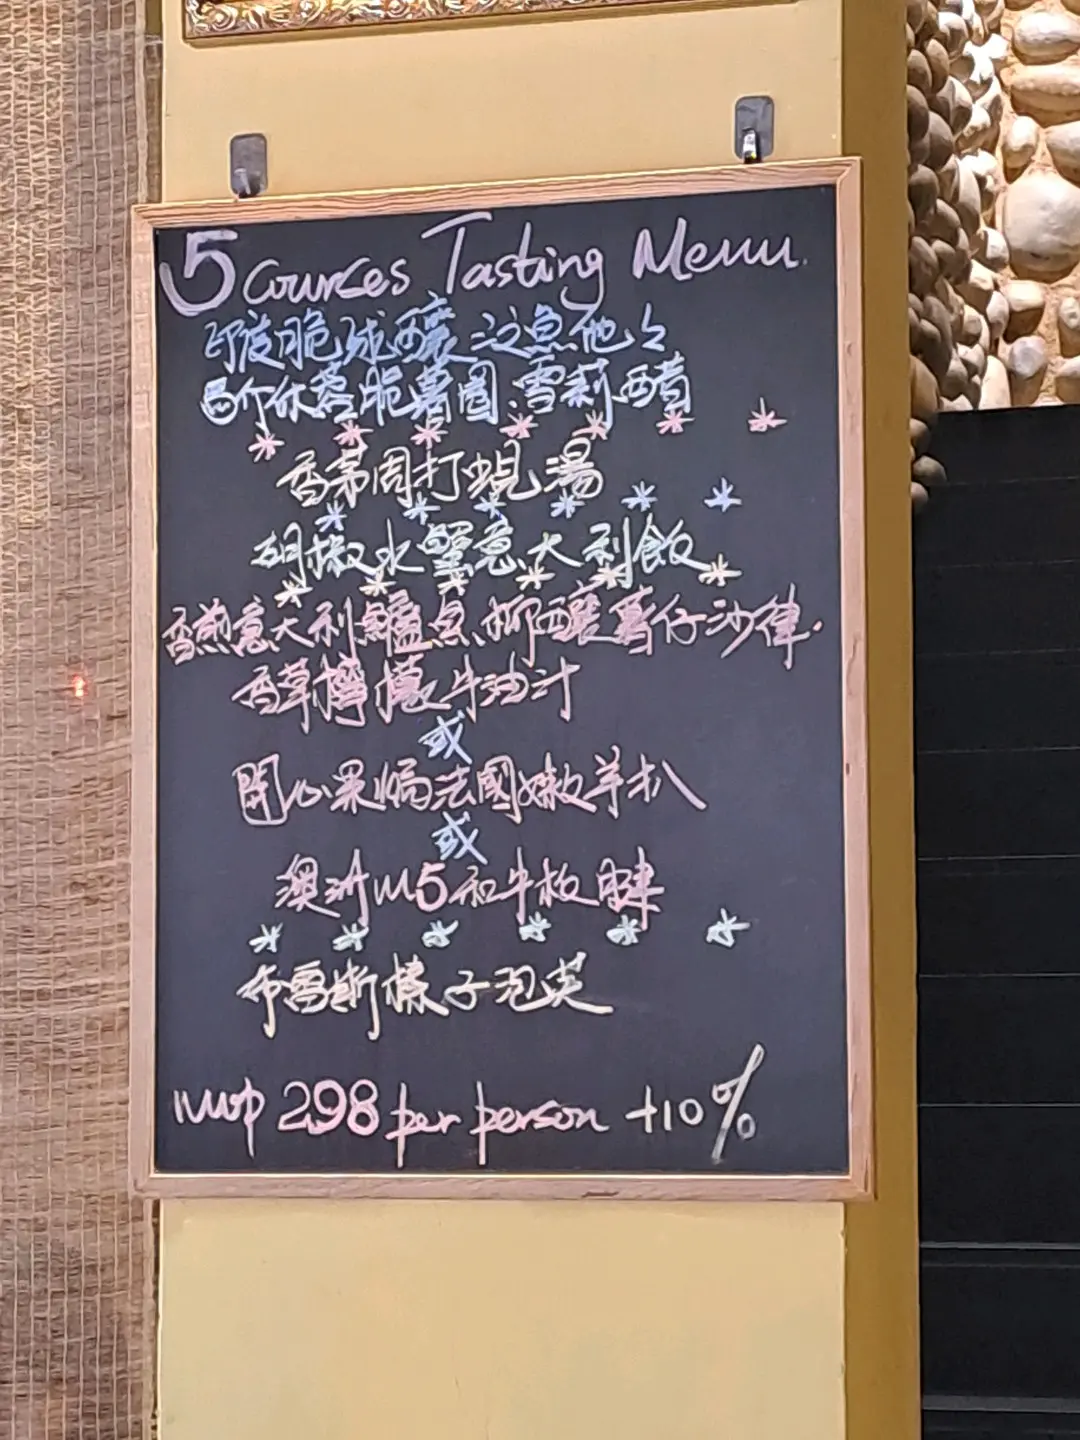 5 Courses Tasting Menu.
印度脆球釀 吞魚他他
西个休蓉脆薯圈.雪莉醋
香茅周打蜆湯
胡椒水蟹意大利飯
香煎意大利鱸魚柳釀薯仔沙律.
香草檸檬牛油汁
或
開心果焗法國嫩羊扒
或
澳洲M5和牛板腱
布雷斯榛子泡芙
mop 298 per person +10%